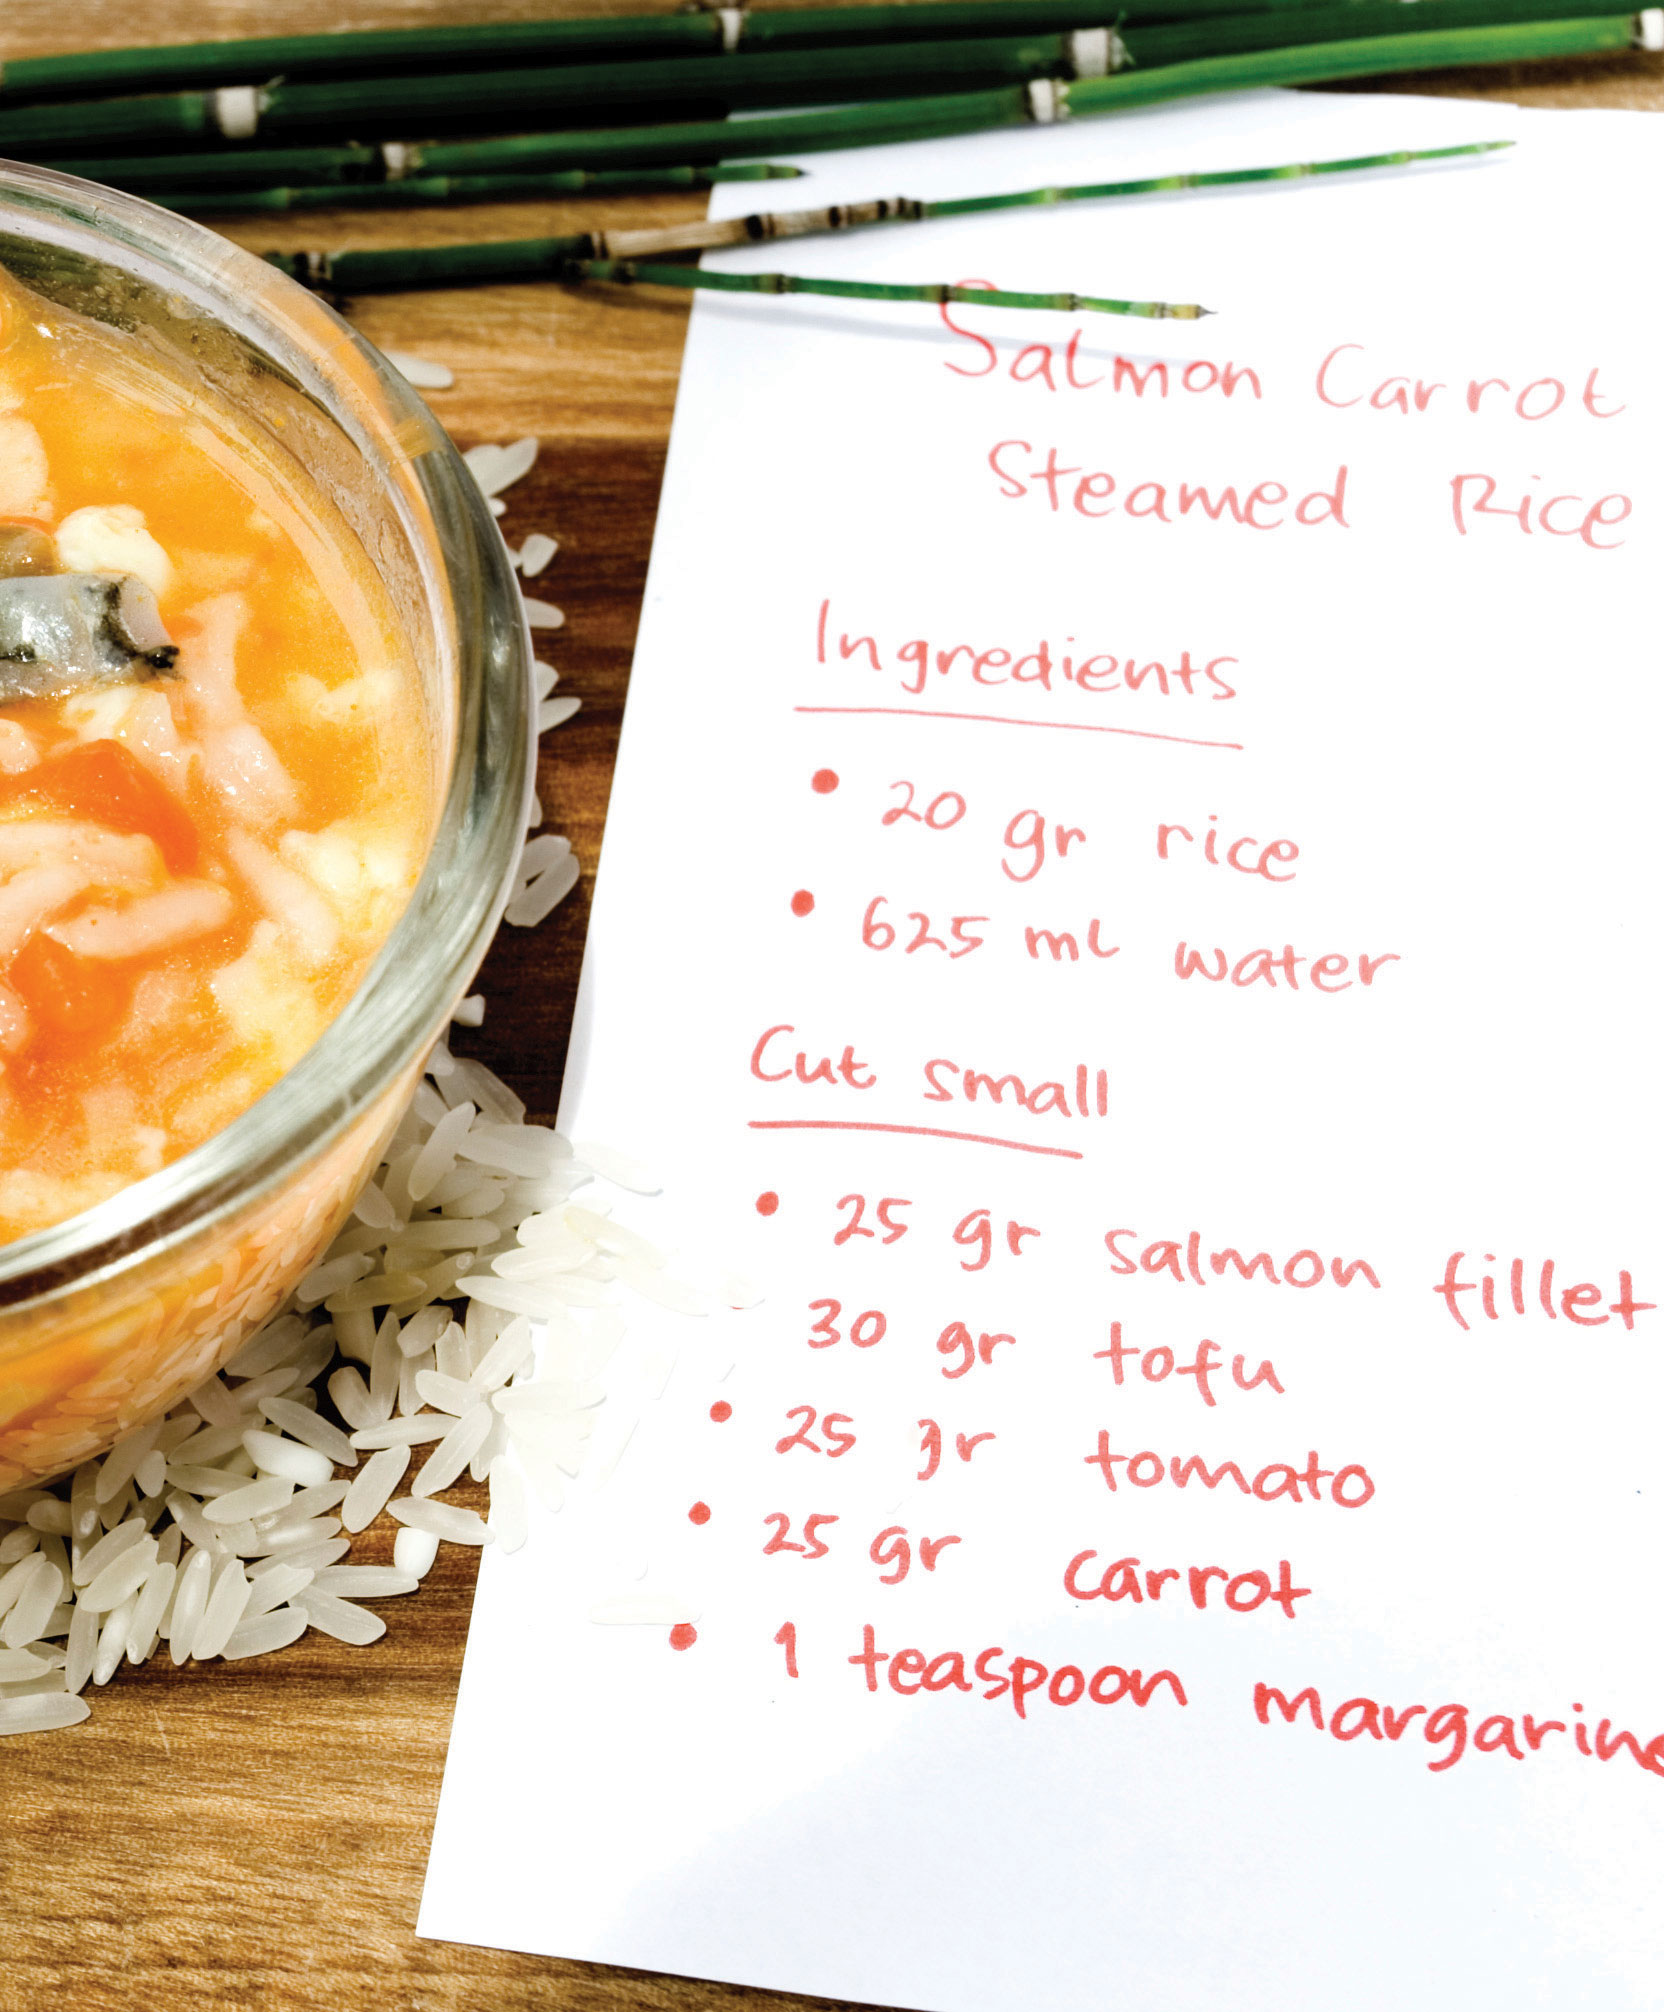 Salmon Carrot
Steamed Rice
Ingredients
• 20 gr rice
• 625 ml water
Cut small
• 25 gr salmon fillet
30 gr tofu
• 25 gr tomato
• 25 gr carrot
• 1 teaspoon margarine